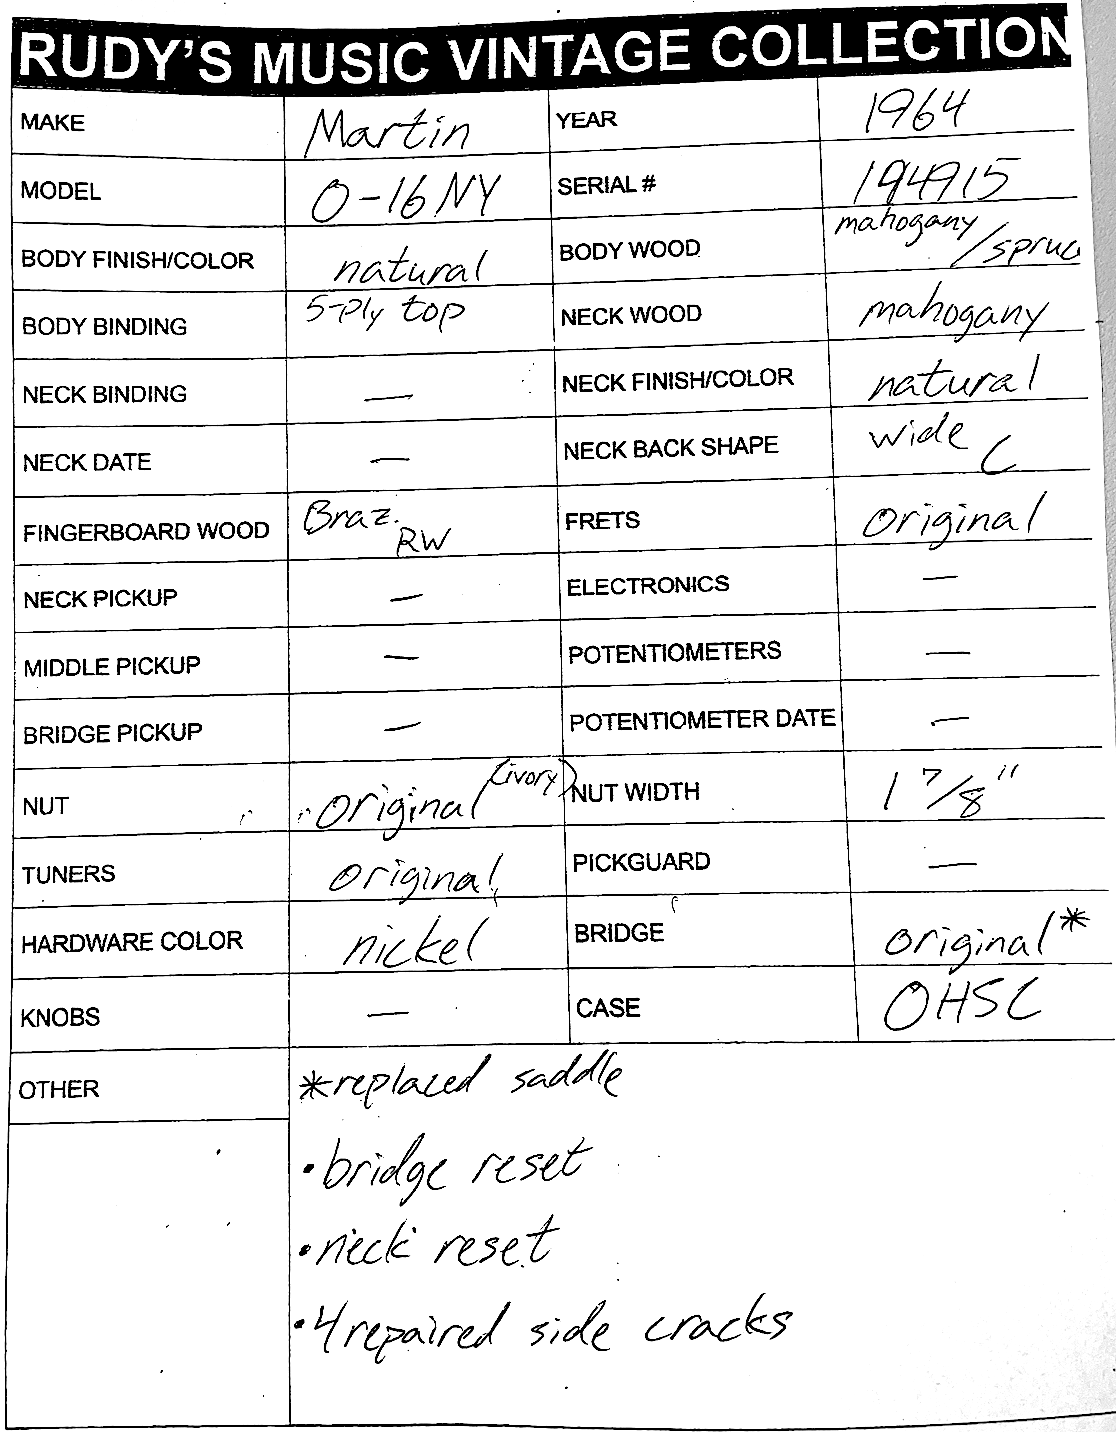 RUDY'S MUSIC VINTAGE COLLECTION
MAKE Martin YEAR 1964
MODEL 0-16NY SERIAL # 194915
BODY FINISH/COLOR natural BODY WOOD mahogany/spruce
BODY BINDING 5-Ply top NECK WOOD mahogany
NECK BINDING — NECK FINISH/COLOR natural
NECK DATE — NECK BACK SHAPE wide C
FINGERBOARD WOOD Braz. RW FRETS original
NECK PICKUP — ELECTRONICS —
MIDDLE PICKUP — POTENTIOMETERS —
BRIDGE PICKUP — POTENTIOMETER DATE —
NUT original (ivory) NUT WIDTH 1 7/8"
TUNERS original PICKGUARD —
HARDWARE COLOR nickel BRIDGE original*
KNOBS — CASE OHSC
OTHER *replaced saddle
•bridge reset
•neck reset
•4 repaired side cracks